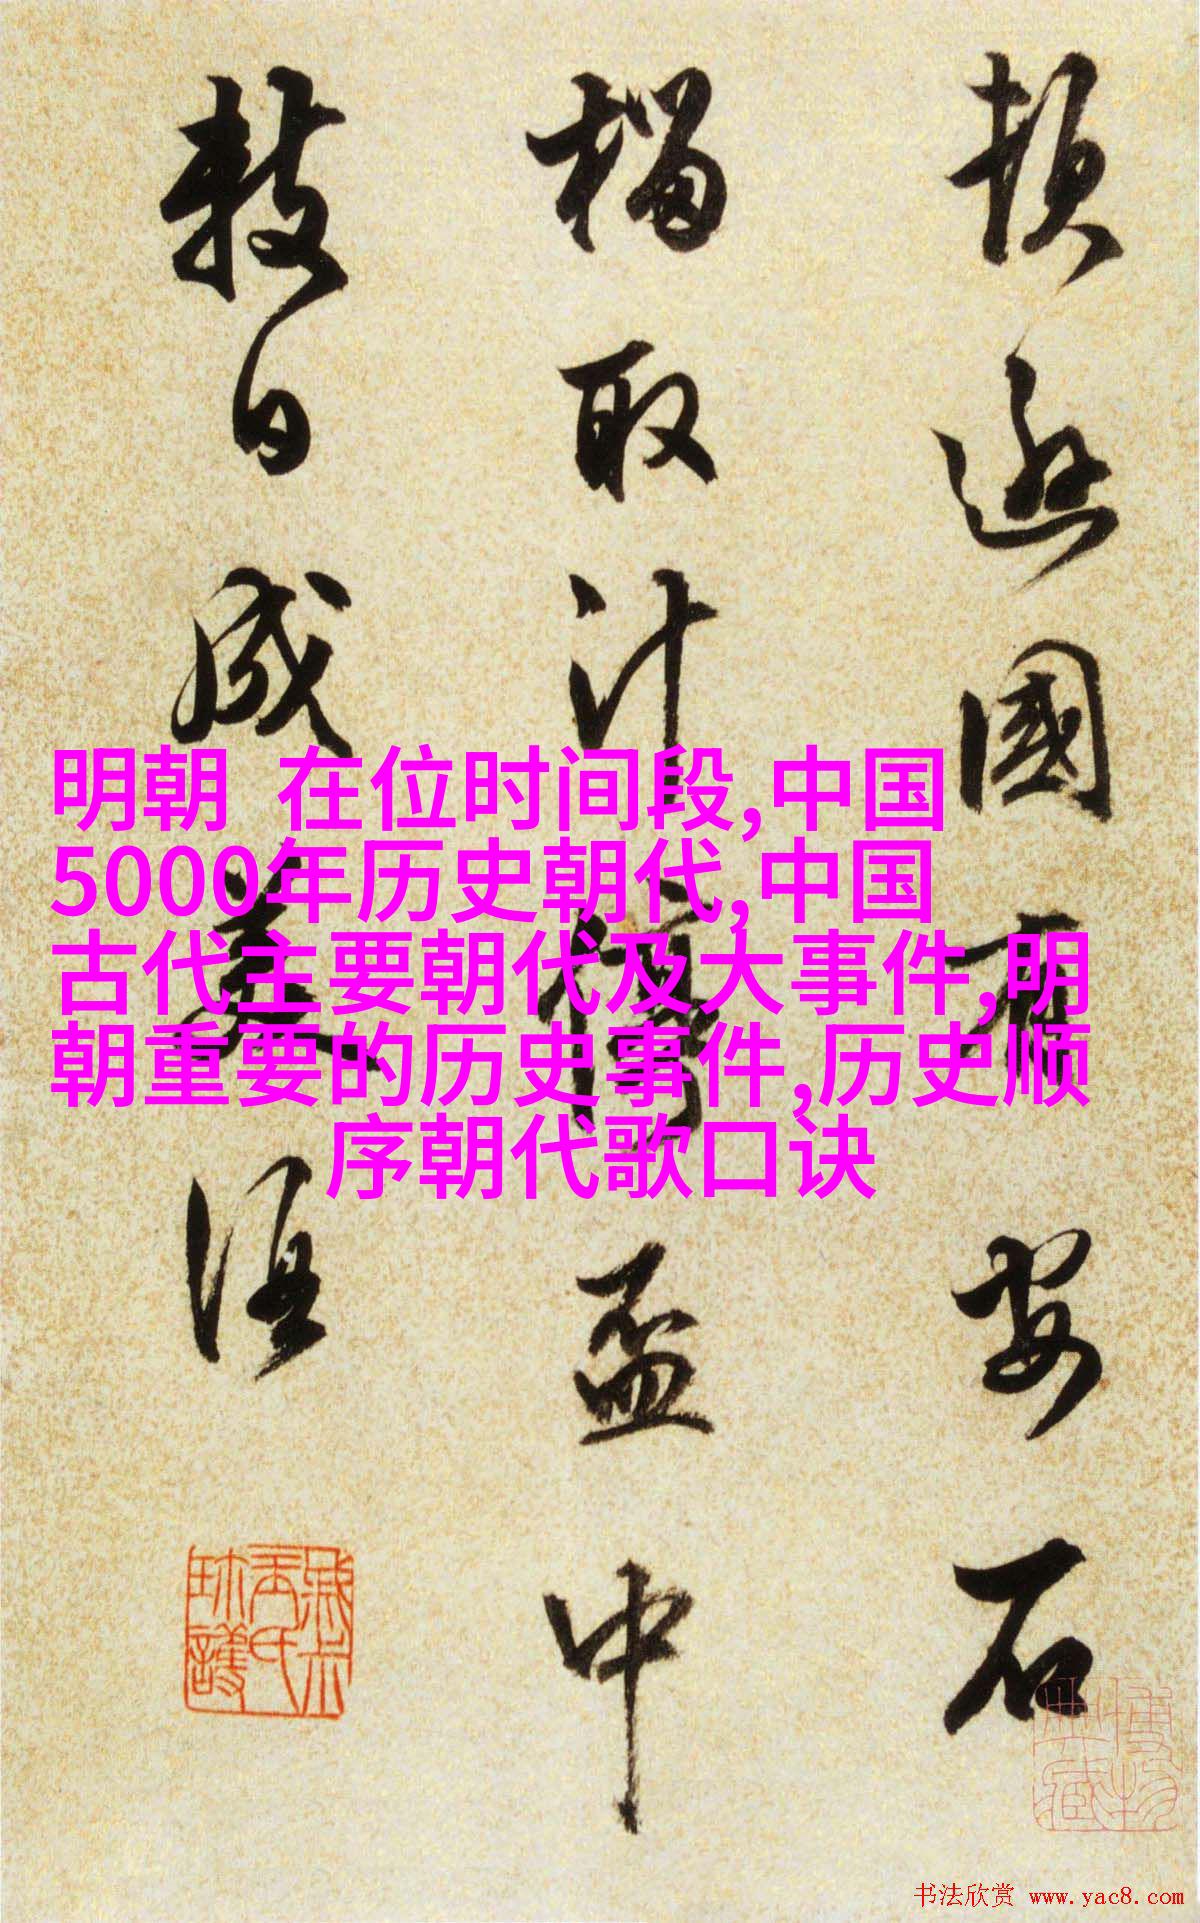 頓遜國有安石
榴取汁停盃中
數日成美酒
明朝 在位时间段,中国
5000年历史朝代,中国
古代主要朝代及大事件,明
朝重要的历史事件,历史顺
序朝代歌口诀
书法欣赏 www.yac8.com